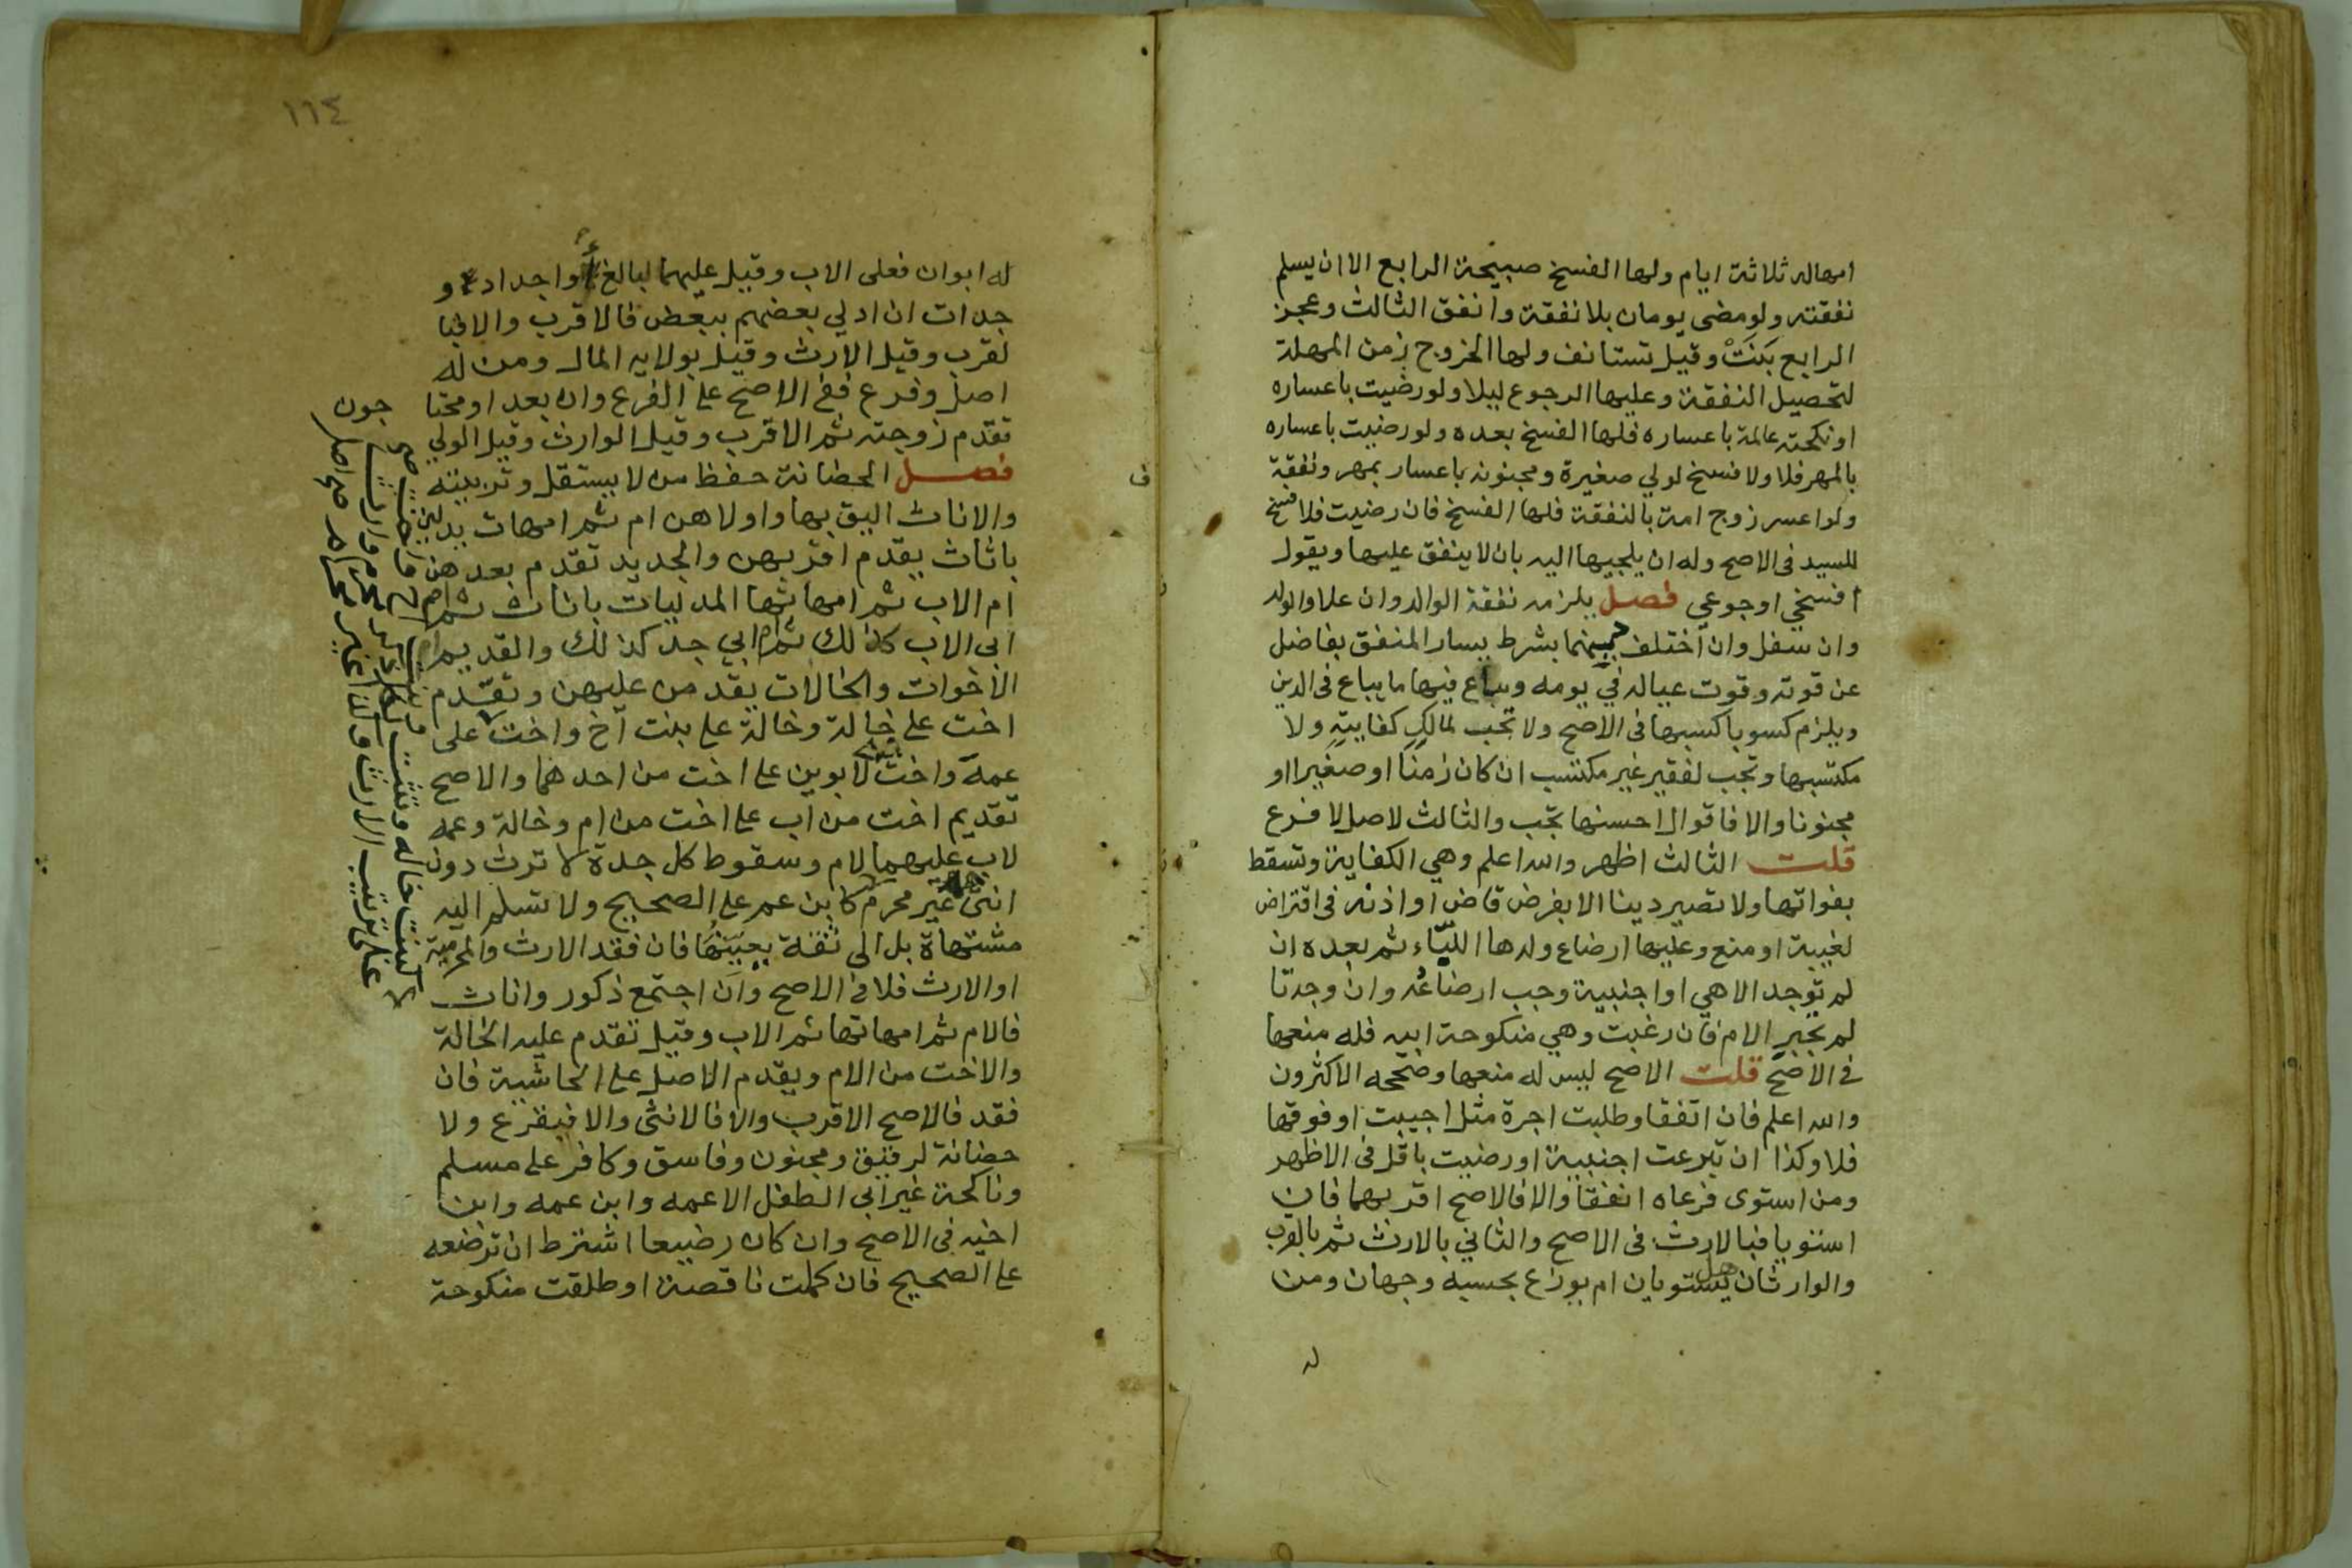 امهاله ثلاثة ايام ولها الفسخ صبيحة الرابع الا ان يسلم
نفقته ولو مضى يومان بلا نفقة وانفق الثالث وعجز
الرابع بَنَتْ وقيل تستانف ولها الخروج زمن المهلة
لتحصيل النفقة وعليها الرجوع ليلا ولو رضيت باعساره
او نكحته عالمة باعساره فلها الفسخ بعده ولو رضيت باعساره
بالمهر فلا ولا فسخ لولي صغيرة ومجنونه باعسار بمهر ونفقة
ولو اعسر زوج امة بالنفقة فلها الفسخ فان رضيت فلا فسخ
للسيد فى الاصح وله ان يلجيها اليه بان لا ينفق عليها ويقول
افسخي او جوعي فصل يلزمه نفقة الوالد وان علا والولد
وان سفل وان اختلف دينهما بشرط يسار المنفق بفاضل
عن قوته وقوت عياله في يومه ويباع فيها ما يباع فى الدين
ويلزم كسوبا كسبها فى الاصح ولا تجب لمالك كفايته ولا
مكتسبها وتجب لفقير غير مكتسب ان كان زمنا او صغيرا او
مجنونا والا فاقوال احسنها تجب والثالث لاصل لا فرع
قلت الثالث اظهر والله اعلم وهي الكفاية وتسقط
بفواتها ولا تصير دينا الا بفرض قاض او اذنه فى اقتراض
لغيبة او منع وعليها ارضاع ولدها اللبّاء ثم بعده ان
لم توجد الا هي او اجنبية وجب ارضاعه وان وجدتا
لم تجبر الام فان رغبت وهي منكوحة ابيه فله منعها
في الاصح قلت الاصح ليس له منعها وصححه الاكثرون
والله اعلم فان اتفقا وطلبت اجرة مثل اجيبت او فوقها
فلا وكذا ان تبرعت اجنبية او رضيت باقل فى الاظهر
ومن استوى فرعاه انفقا والا فالاصح اقربهما فان
استويا فبالارث فى الاصح والثاني بالارث ثم بالقرب
والوارثان هل يستويان ام يوزع بحسبه وجهان ومن
له
١١٤
له ابوان فعلى الاب وقيل عليهما لبالغ او اجداد و
جدات ان ادلي بعضهم ببعض فالاقرب والا فبا
لقرب وقيل الارث وقيل بولايه المال ومن له
اصل وفرع ففي الاصح على الفرع وان بعد او محتا
جون
تقدم زوجته ثم الاقرب وقيل الوارث وقيل الولي
فصل الحضانة حفظ من لا يستقل وتربيته
والاناث اليق بها واولاهن ام ثم امهات يدلين
باناث يقدم اقربهن والجديد تقدم بعدهن
ام الاب ثم امهاتها المدليات باناث ثم ام
ابى الاب كذلك ثم ام ابي جد كذلك والقديم
الاخوات والخالات يقدمن عليهن وتقدم
اخت على خالة وخالة على بنت اخ واخت على
عمة واخت لابوين على اخت من احدهما والاصح
تقديم اخت من اب على اخت من ام وخالة وعمه
لاب عليهما لام وسقوط كل جدة لا ترث دون
انثى غير محرم كابن عم على الصحيح ولا تسلم اليه
مشتهاة بل الى ثقة يعينها فان فقد الارث والمحرمية
او الارث فلا في الاصح وان اجتمع ذكور واناث
فالام ثم امهاتها ثم الاب وقيل تقدم عليه الخالة
والاخت من الام ويقدم الاصل على الحاشية فان
فقد فالاصح الاقرب والا فالانثى والا فيقرع ولا
حضانة لرقيق ومجنون وفاسق وكافر على مسلم
وناكحة غير ابى الطفل الا عمه وابن عمه وابن
اخيه فى الاصح وان كان رضيعا اشترط ان ترضعه
على الصحيح فان كملت ناقصة او طلقت منكوحة
على ترتيب الارث